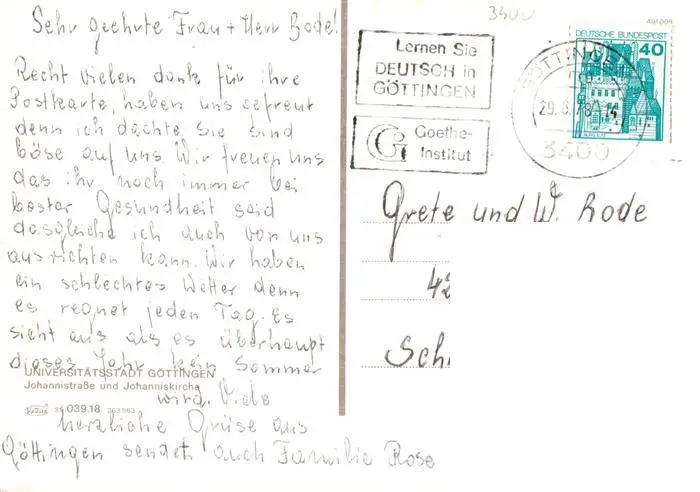 3400
Sehr geehrte Frau + Herr Bode!
Recht vielen dank für ihre
Postkarte, haben uns gefreut
denn ich dachte, Sie sind
böse auf uns. Wir freuen uns
das ihr noch immer bei
bester Gesundheit seid
dasgleiche ich auch von uns
ausrichten kann. Wir haben
ein schlechtes Wetter denn
es regnet jeden Tag. Es
sieht aus als es überhaupt
dieses Jahr kein Sommer
wird. Viele
herzliche Grüse aus
Göttingen sendet auch Familie Rose
UNIVERSITÄTSSTADT GÖTTINGEN
Johannistraße und Johanniskirche
039.18
Lernen Sie
DEUTSCH in
GÖTTINGEN
Goethe-
Institut
GÖTTINGEN
29.6.78
3400
DEUTSCHE BUNDESPOST
40
Grete und W. Rode
42
Sch